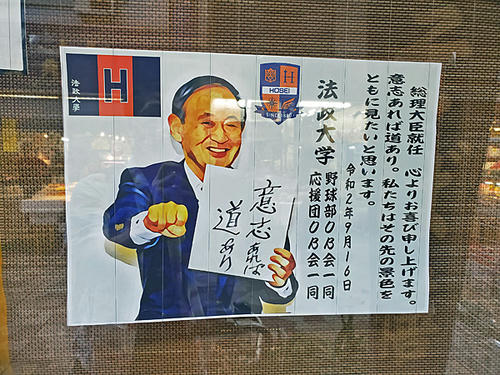 総理大臣就任　心よりお喜び申し上げます。
意志あれば道あり。私たちはその先の景色を
ともに見たいと思います。
令和2年9月16日
法政大学
野球部OB会一同
応援団OB会一同
意志あれば
道あり
法政大學
H
H
HOSEI